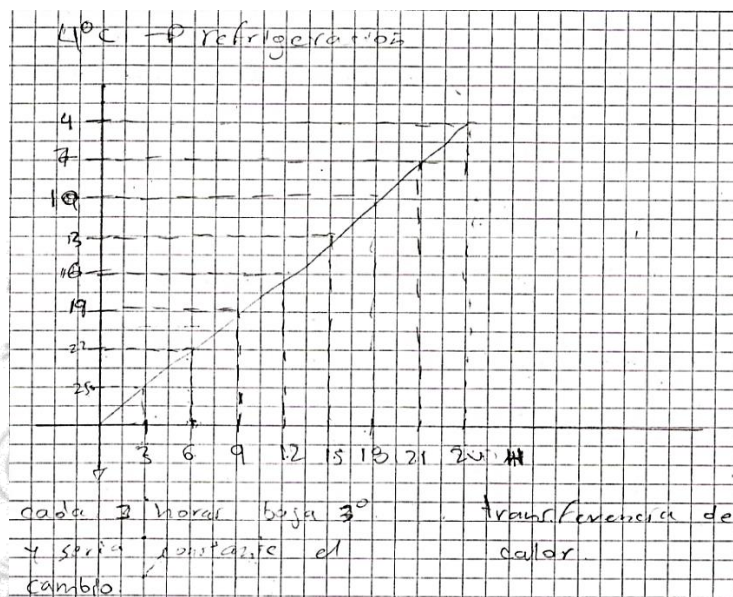 4°C → refrigeración
4
7
10
13
16
19
22
25
3 6 9 12 15 18 21 24
cada 3 horas baja 3°
y seria constante el
cambio
transferencia de
calor.